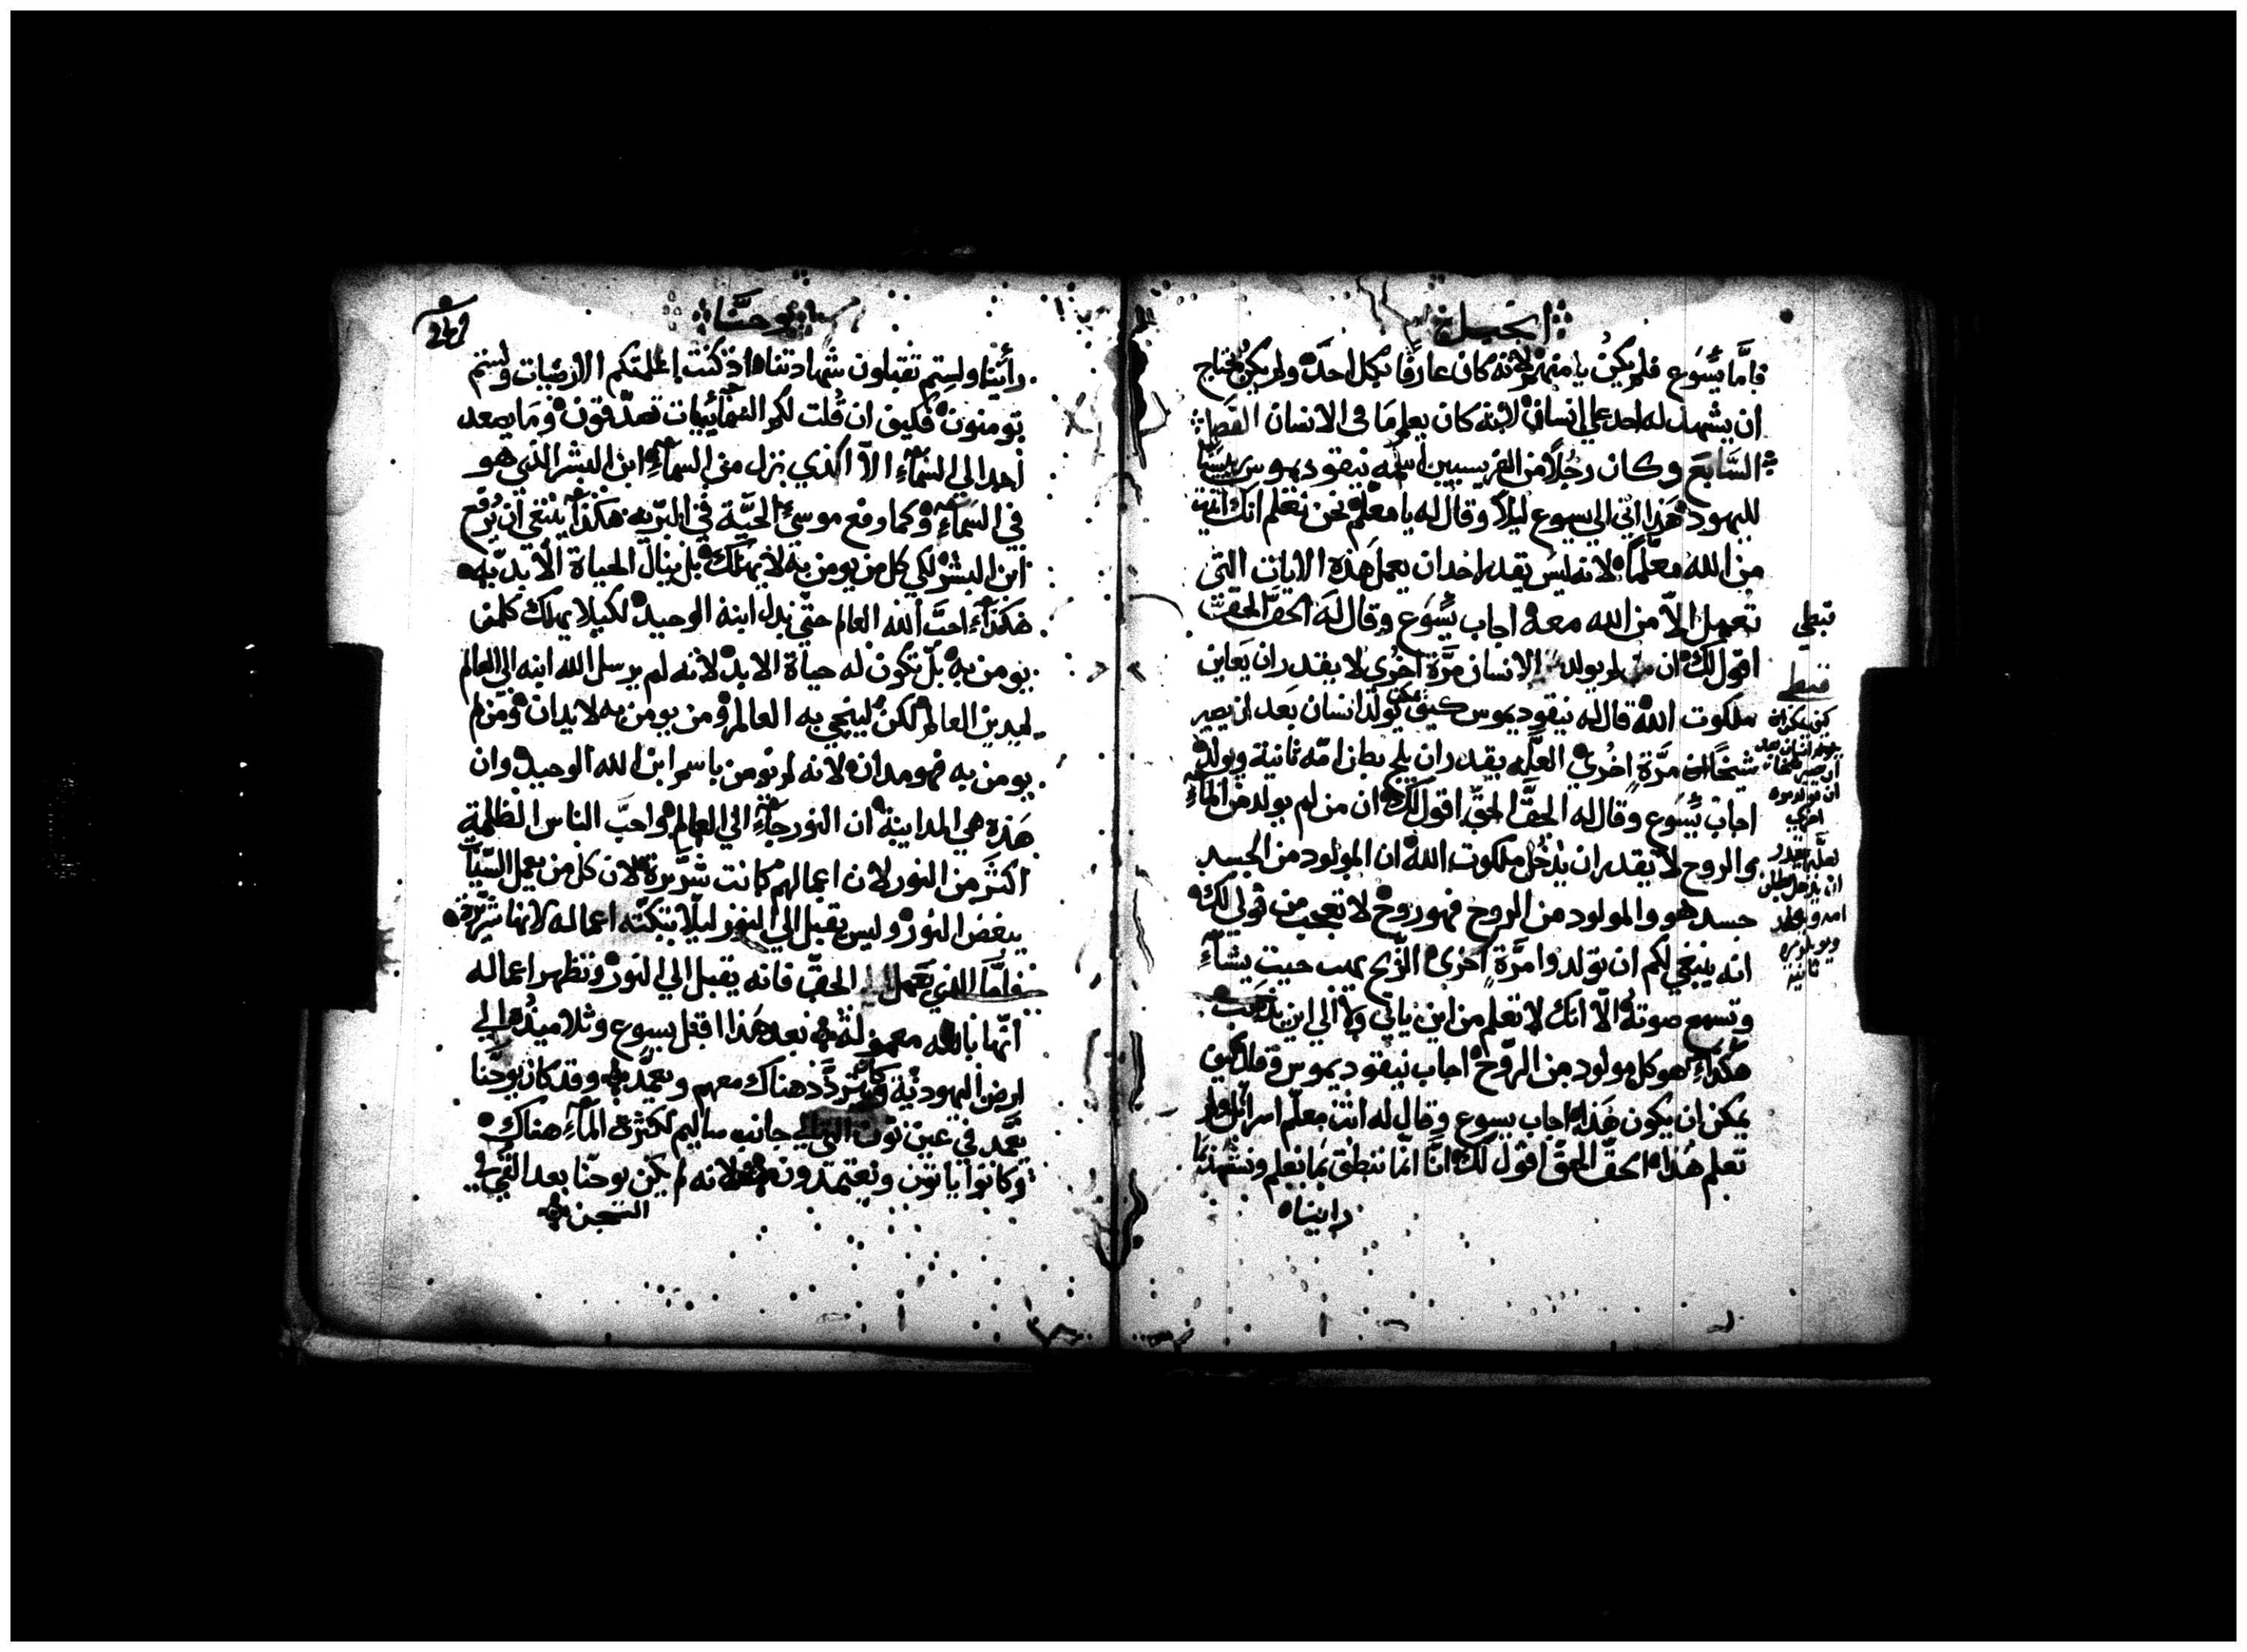 انجيل
فامَّا يَسُوَع فلم يكنُ يامنهم لانه كان عارفًا بكل احد ولم يكن محتاج
ان يشهد له احد على انسان لانه كان يعلم مَا فى الانسان الفصل
السَّابع وكان رجُلاً من الفريسيين اسمه نيقوديموس رييسًا
لليهود هَذا اتي الي يسوع ليلاً وقال له يا معلم نحن نعلم انك اتيت
من الله معلّمًا لانه ليس يقدر احد ان يعمل هَذه الايات التى
تعمل الاّ من الله معه اجاب يَسُوَع وقال لَه الحقَّ الحقَّ
اقول لك ان لم يولد الانسان مرَّة اخرى لا يقدر ان يَعَاين
ملكوت الله قال له نيقوديموس كيف يمكن يولد انسان بَعد ان يصير
شيخًا مرَّة اخُرى العلّه يقدر ان يلج بطن امّه ثانية ويولد
اجاب يَسُوَع وقال له الحقَّ الحقَّ اقول لك ان من لم يولد من المآءِ
والروح لا يقدر ان يدخُل ملكوت الله ان المولود من الجسد
جسد هو والمولود من الروح فهو روحٌ لا تعجب من قولي لك
انه ينبغي لكم ان تولدوا مرَّة اخرى الرّيح يهب حيث يشآءِ
وتسمع صوته الّا انك لا تعلم من اين ياتي ولا الي اين يذهب
هَكذاءِ هو كل مولود من الرّوح اجاب نيقوديموس وقال كيف
يمكن ان يكون هَذا اجاب يسوع وقال له انت معلّم اسرائيل ولم
تعلم هُذا الحقَّ الحقَّ اقول لك انَّا انّما ننطق بما نعلم ونشهد بما
راينا
قبطي
قبطي
كيف يمكن ان
يولد انسان بعد
ان يصير شيخا
ان يولد مرة
اخري
لعلّه يقدر
ان يدخل بطن
امه
ويولد مرة
ثانية
يوحَنَّا
249
رأينا ولستم تقبلون شهادتنا اذ كنت اعلمتكم الارضيات ولستم
تومنون فكيف ان قُلت لكم السَمآئيات تصدّقون ومَا يصعد
احد الي السَمآءِ الاّ الذي نزل من السمآءِ ابن البشر الذي هو
في السَمآءِ وكما رفع موسىَ الحيَّة في البرّيه هكذا ينبغي ان يُرفع
ابن البشر لكي كل من يومن به لا يهلك بل ينال الحياة الابديّه
هَكذاءِ احبَّ الله العالم حتّي بدل ابنه الوحيد لكيلا يهلك كلمن
يومن به بل تكون له حياة الابد لانه لم يرسل الله ابنه الى العالم
ليدين العالم لكن لينجي به العالم ومن يومن به لا يدان ومن لم
يومن به فهو مدان لانه لم يومن باسم ابن الله الوحيد وان
هَذه هي المداينة ان النور جآءِ الي العالم واحبَّ الناس الظلمة
اكثَر من النور لان اعمالهم كانت شرَّيرة لان كل من يعمل السّيات
يبغض النور وليس يقبل الي النور ليلّا تبكّته اعماله لانها شرّيرة
فامَّا الذي يَعمل الحقَّ فانه يقبل الي النور وتظهر اعماله
انّها بالله معموله بعد هَذا اقبل يسوع وثلاميذه الي
ارض اليهوديّة وكان يتردَّد هناك معهم ويعمّد وقد كان يوحَنّا
يعَمَّد في عين نون التى الي جانب ساليم لكثرة المآءِ هناك
وكانوا ياتون ويعتمدون لانه لم يكن يوحنّا بعد القي في
السجن